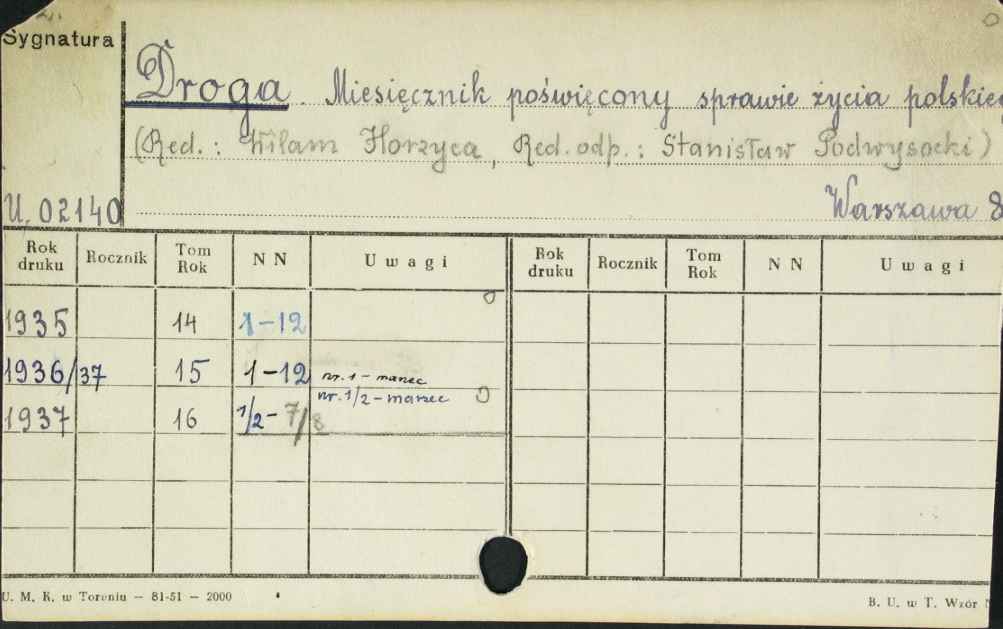 Sygnatura
Droga. Miesięcznik poświęcony sprawie życia polskieg
(Red.: Wilam Horzyca, Red. odp.: Stanisław Podwysocki)
U. 02140 Warszawa 8
Rok druku Rocznik Tom Rok N N Uwagi Rok druku Rocznik Tom Rok N N Uwagi
1935 14 1-12
1936/37 15 1-12 nr. 1 - marzec
nr. 1/2 - marzec
1937 16 1/2 - 7/8
U. M. K. w Toruniu — 81-51 — 2000 B. U. w T. Wzór